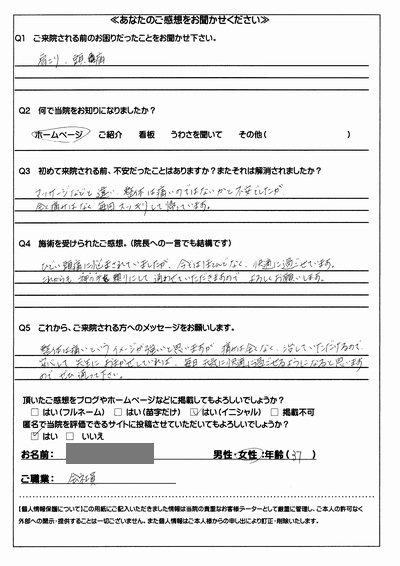 ≪あなたのご感想をお聞かせください≫
Q1 ご来院される前のお困りだったことをお聞かせ下さい。
肩こり、頭痛
Q2 何で当院をお知りになりましたか？
ホームページ ご紹介 看板 うわさを聞いて その他（ ）
Q3 初めて来院される前、不安だったことはありますか？またそれは解消されましたか？
マッサージなどと違い、整体は痛いのではないかと不安でしたが
全く痛みはなく毎回スッキリして帰っています。
Q4 施術を受けられたご感想。（院長への一言でも結構です）
ひどい頭痛に悩まされていましたが、今はほとんどなく、快適に過ごせています。
これからも 頼りにして 通わせていただきますので よろしくお願いします。
Q5 これから、ご来院される方へのメッセージをお願いします。
整体は痛いというイメージが強いと思いますが 痛みは全くなく、治していただけるので、
安心して 先生に おまかせしていれば、毎日 快適に過ごせるようになると思います
ので ぜひ通って下さい。
頂いたご感想をブログやホームページなどに掲載してもよろしいでしょうか？
□ はい（フルネーム） □ はい（苗字だけ） ☑ はい（イニシャル） □ 掲載不可
匿名で当院を評価できるサイトに投稿させていただいてもよろしいでしょうか？
☑ はい □ いいえ
お名前： 男性・女性：年齢（37）
ご職業： 会社員
【個人情報保護について】この用紙にご記入いただきました情報は当院の貴重なお客様データーとして厳重に管理し、ご本人の許可なく
外部への開示・提供することは一切ございません。また個人情報はご本人様からの申し出により訂正・削除いたします。